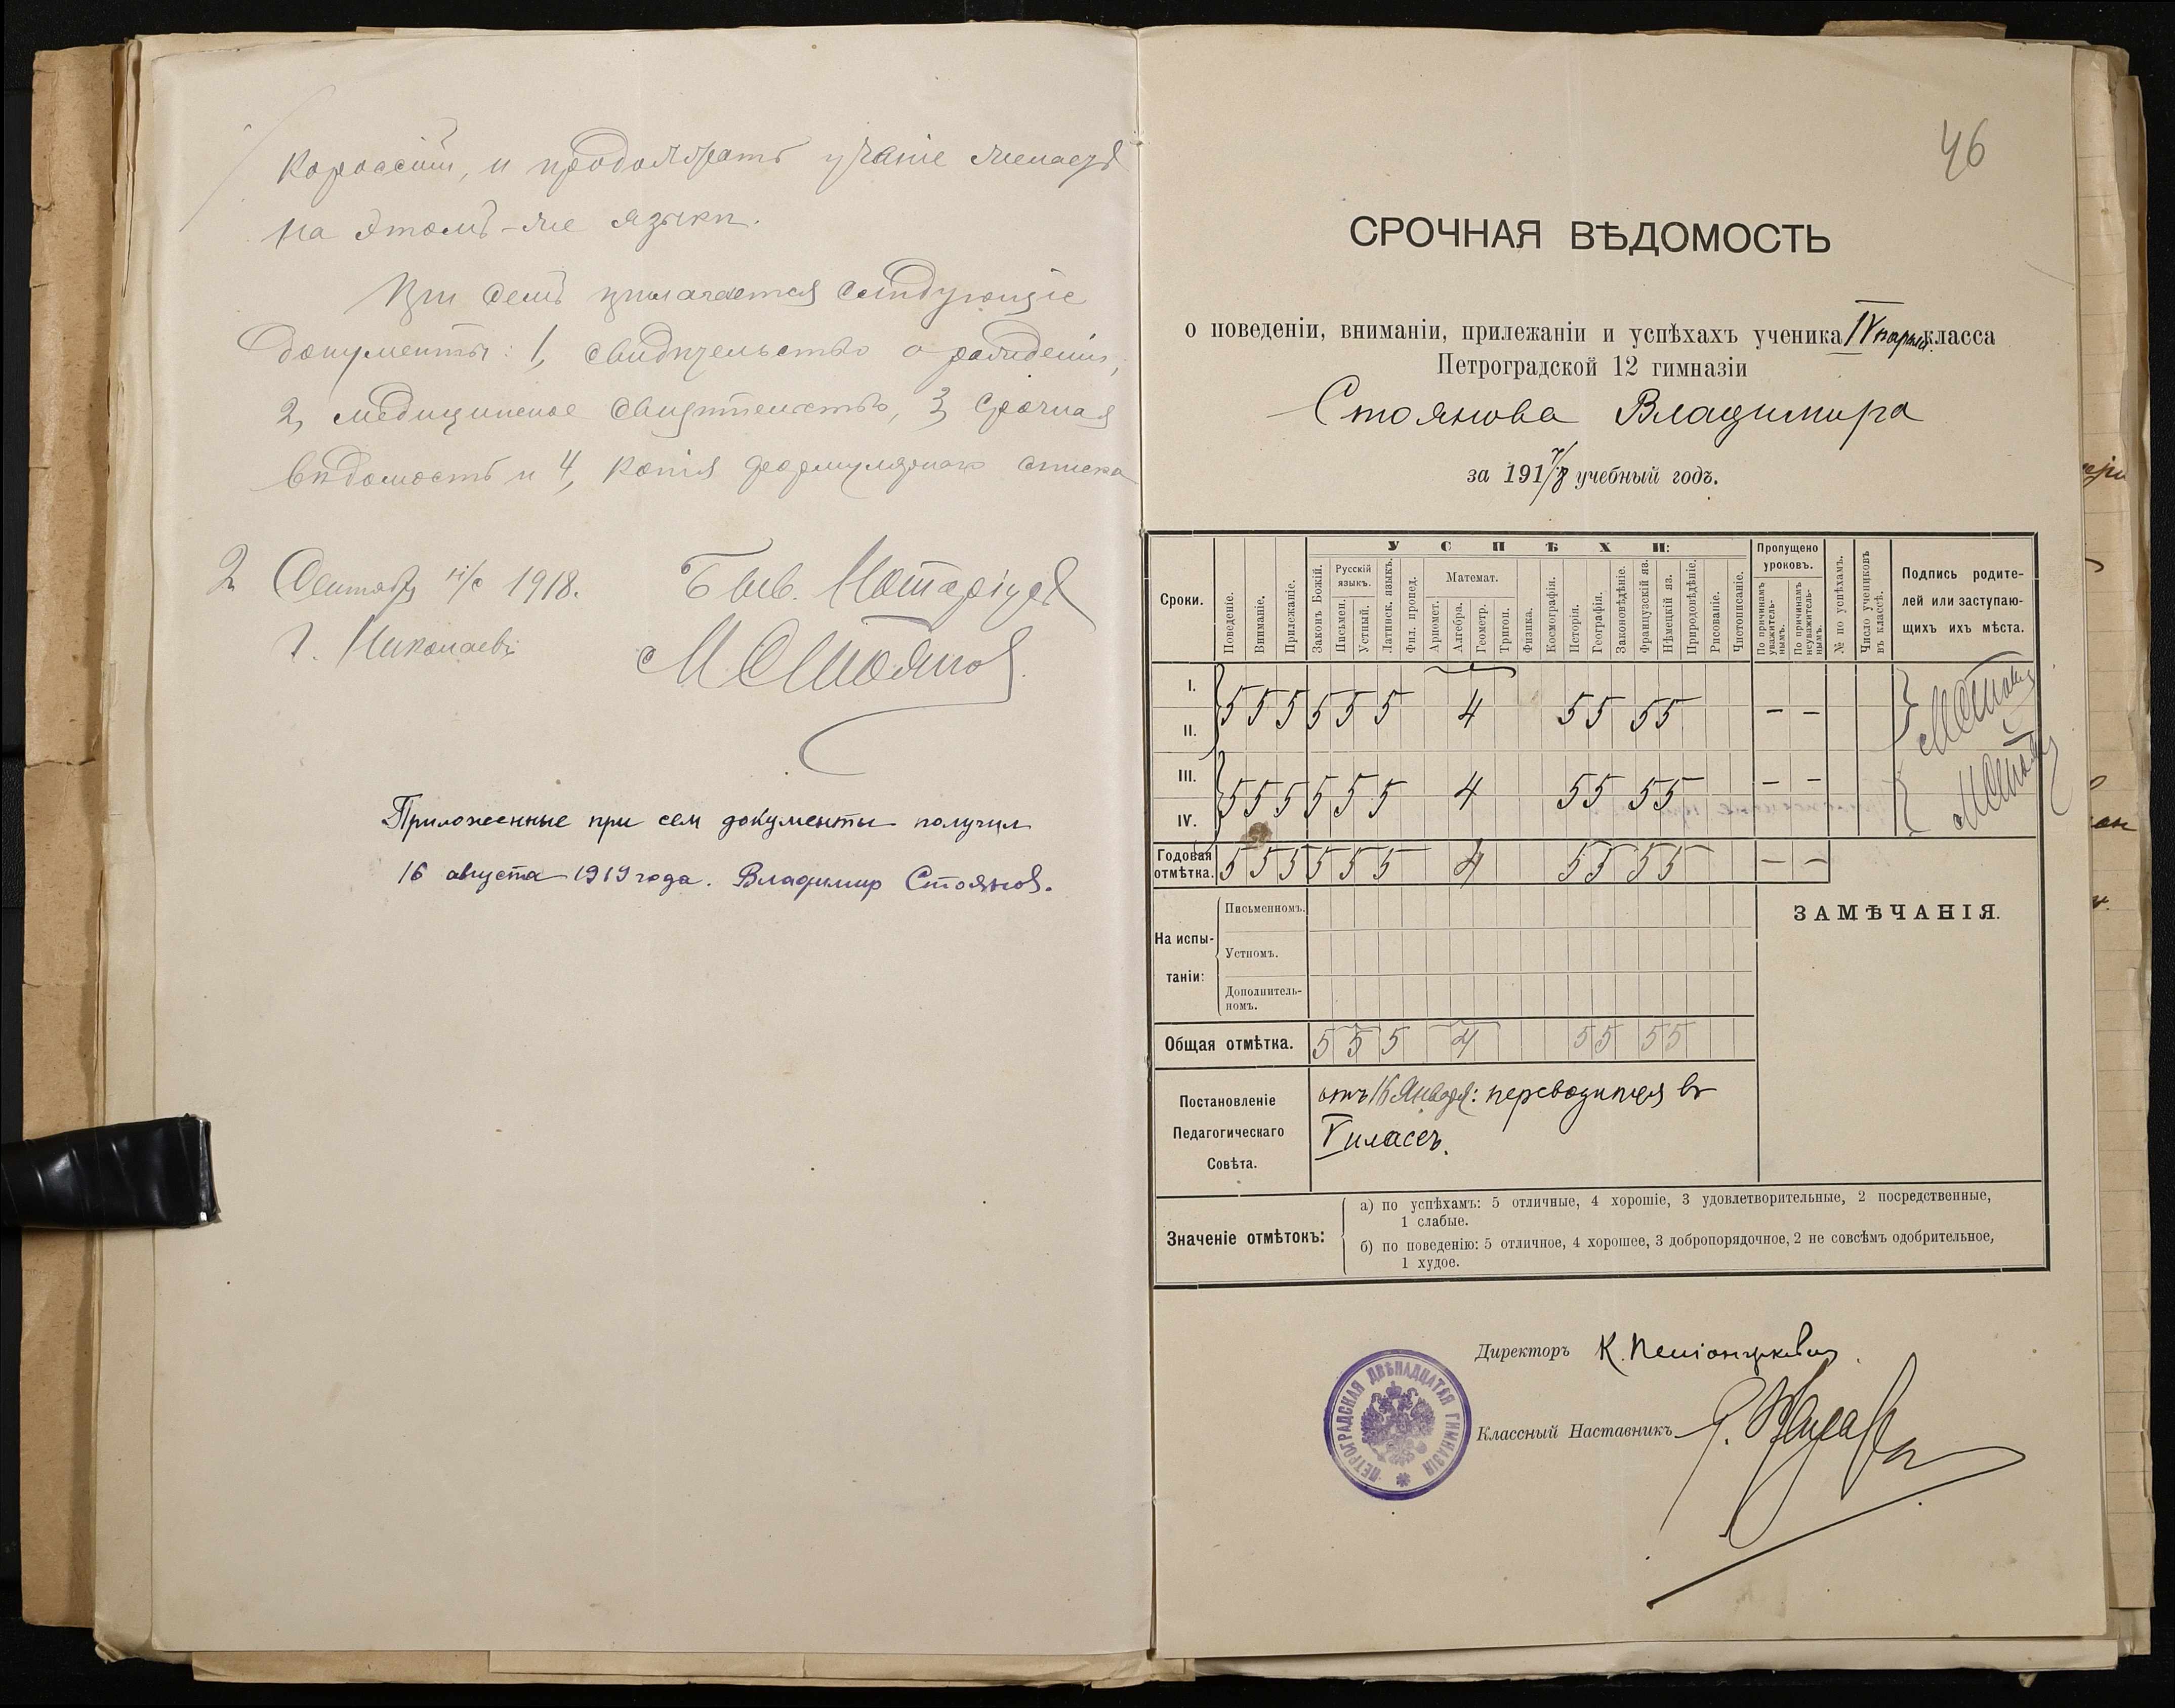 и продолжать ученіе желаетъ
на этомъ-же языкѣ.
При семъ прилагается слѣдующіе
документы: 1, свидѣтельство о рожденіи,
2, медицинское свидѣтельство, 3, срочная
вѣдомость и 4, копія формулярнаго списка
2 Сентября н/с 1918. Быв. Нотаріусъ
г. Николаевъ МСтояновъ
Приложенные при сем документы получил
16 августа 1919 года. Владимир Стоянов.
46
СРОЧНАЯ ВѢДОМОСТЬ
о поведеніи, вниманіи, прилежаніи и успѣхахъ ученика IV парал. класса
Петроградской 12 гимназіи
Стоянова Владимира
за 1917/8 учебный годъ.
Сроки.
Поведеніе.
Вниманіе.
Прилежаніе.
УСПѢХИ:
Законъ Божій.
Русскій языкъ.
Письмен.
Устный.
Латинск. языкъ.
Фил. пропед.
Математ.
Ариѳмет.
Алгебра.
Геометр.
Тригон.
Физика.
Космографія.
Исторія.
Географія.
Законовѣдѣніе.
Французскій яз.
Нѣмецкій яз.
Природовѣдѣніе.
Рисованіе.
Чистописаніе.
Пропущено уроковъ.
По причинамъ уважительнымъ.
По причинамъ неуважительнымъ.
№ по успѣхамъ.
Число учениковъ въ классѣ.
Подпись родите-
лей или заступаю-
щихъ ихъ мѣста.
I.
II. 5 5 5 5 5 5 4 5 5 5 5 — — МСтоянов
III.
IV. 5 5 5 5 5 5 4 5 5 5 5 — — МСтоянов
Годовая отмѣтка. 5 5 5 5 5 5 4 5 5 5 5 — —
На испы-
таніи:
Письменномъ.
Устномъ.
Дополнитель-
номъ.
ЗАМѢЧАНІЯ.
Общая отмѣтка. 5 5 5 4 5 5 5 5
Постановленіе
Педагогическаго
Совѣта.
отъ 16 Января: переводится въ
V классъ.
Значеніе отмѣтокъ:
а) по успѣхамъ: 5 отличные, 4 хорошіе, 3 удовлетворительные, 2 посредственные,
1 слабые.
б) по поведенію: 5 отличное, 4 хорошее, 3 добропорядочное, 2 не совсѣмъ одобрительное,
1 худое.
Директоръ К.
Классный Наставникъ
ПЕТРОГРАДСКАЯ ДВѢНАДЦАТАЯ ГИМНАЗІЯ